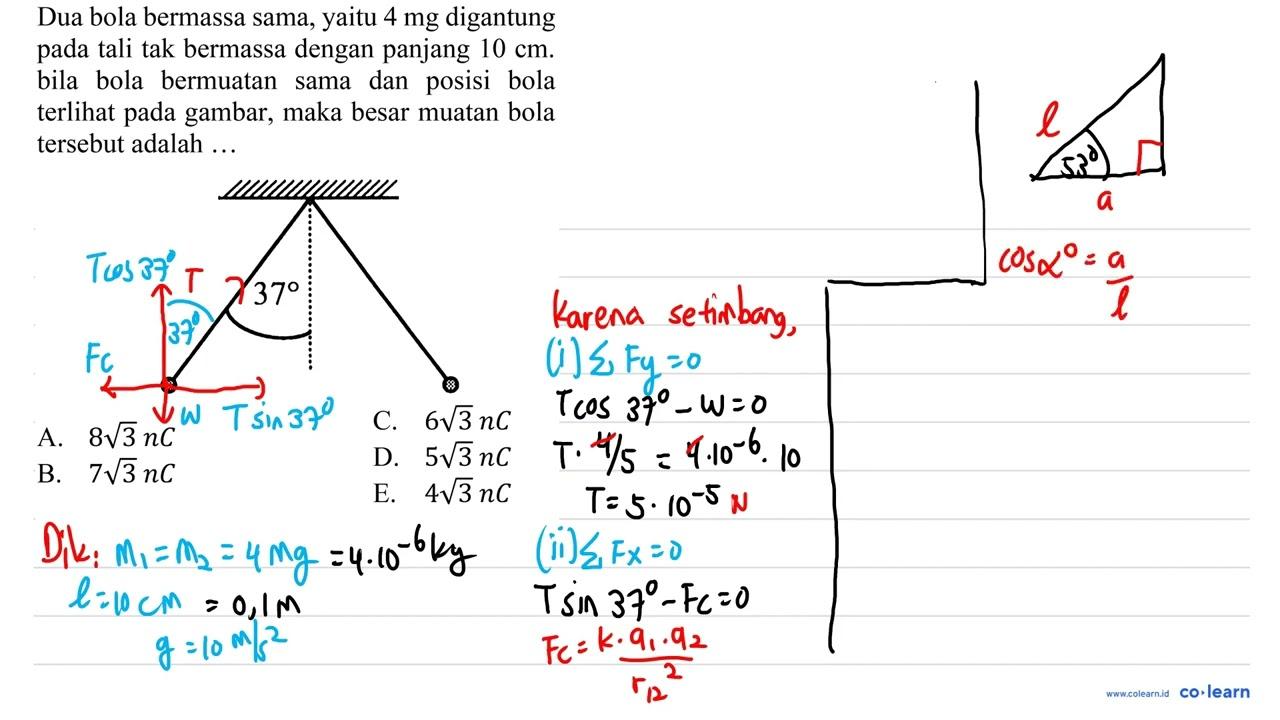 Dua bola bermassa sama, yaitu 4 mg digantung
pada tali tak bermassa dengan panjang 10 cm.
bila bola bermuatan sama dan posisi bola
terlihat pada gambar, maka besar muatan bola
tersebut adalah …
l
53°
a
cos α° = a/l
T cos 37°
T
37°
37°
Fc
W
T sin 37°
A. 8√3 nC
B. 7√3 nC
C. 6√3 nC
D. 5√3 nC
E. 4√3 nC
Dik: m₁ = m₂ = 4 mg = 4·10⁻⁶ kg
l = 10 cm = 0,1 m
g = 10 m/s²
Karena setimbang,
(i) Σ Fy = 0
T cos 37° - W = 0
T · 4/5 = 4·10⁻⁶ · 10
T = 5·10⁻⁵ N
(ii) Σ Fx = 0
T sin 37° - Fc = 0
Fc = k·q₁·q₂/r₁₂²
www.colearn.id co·learn